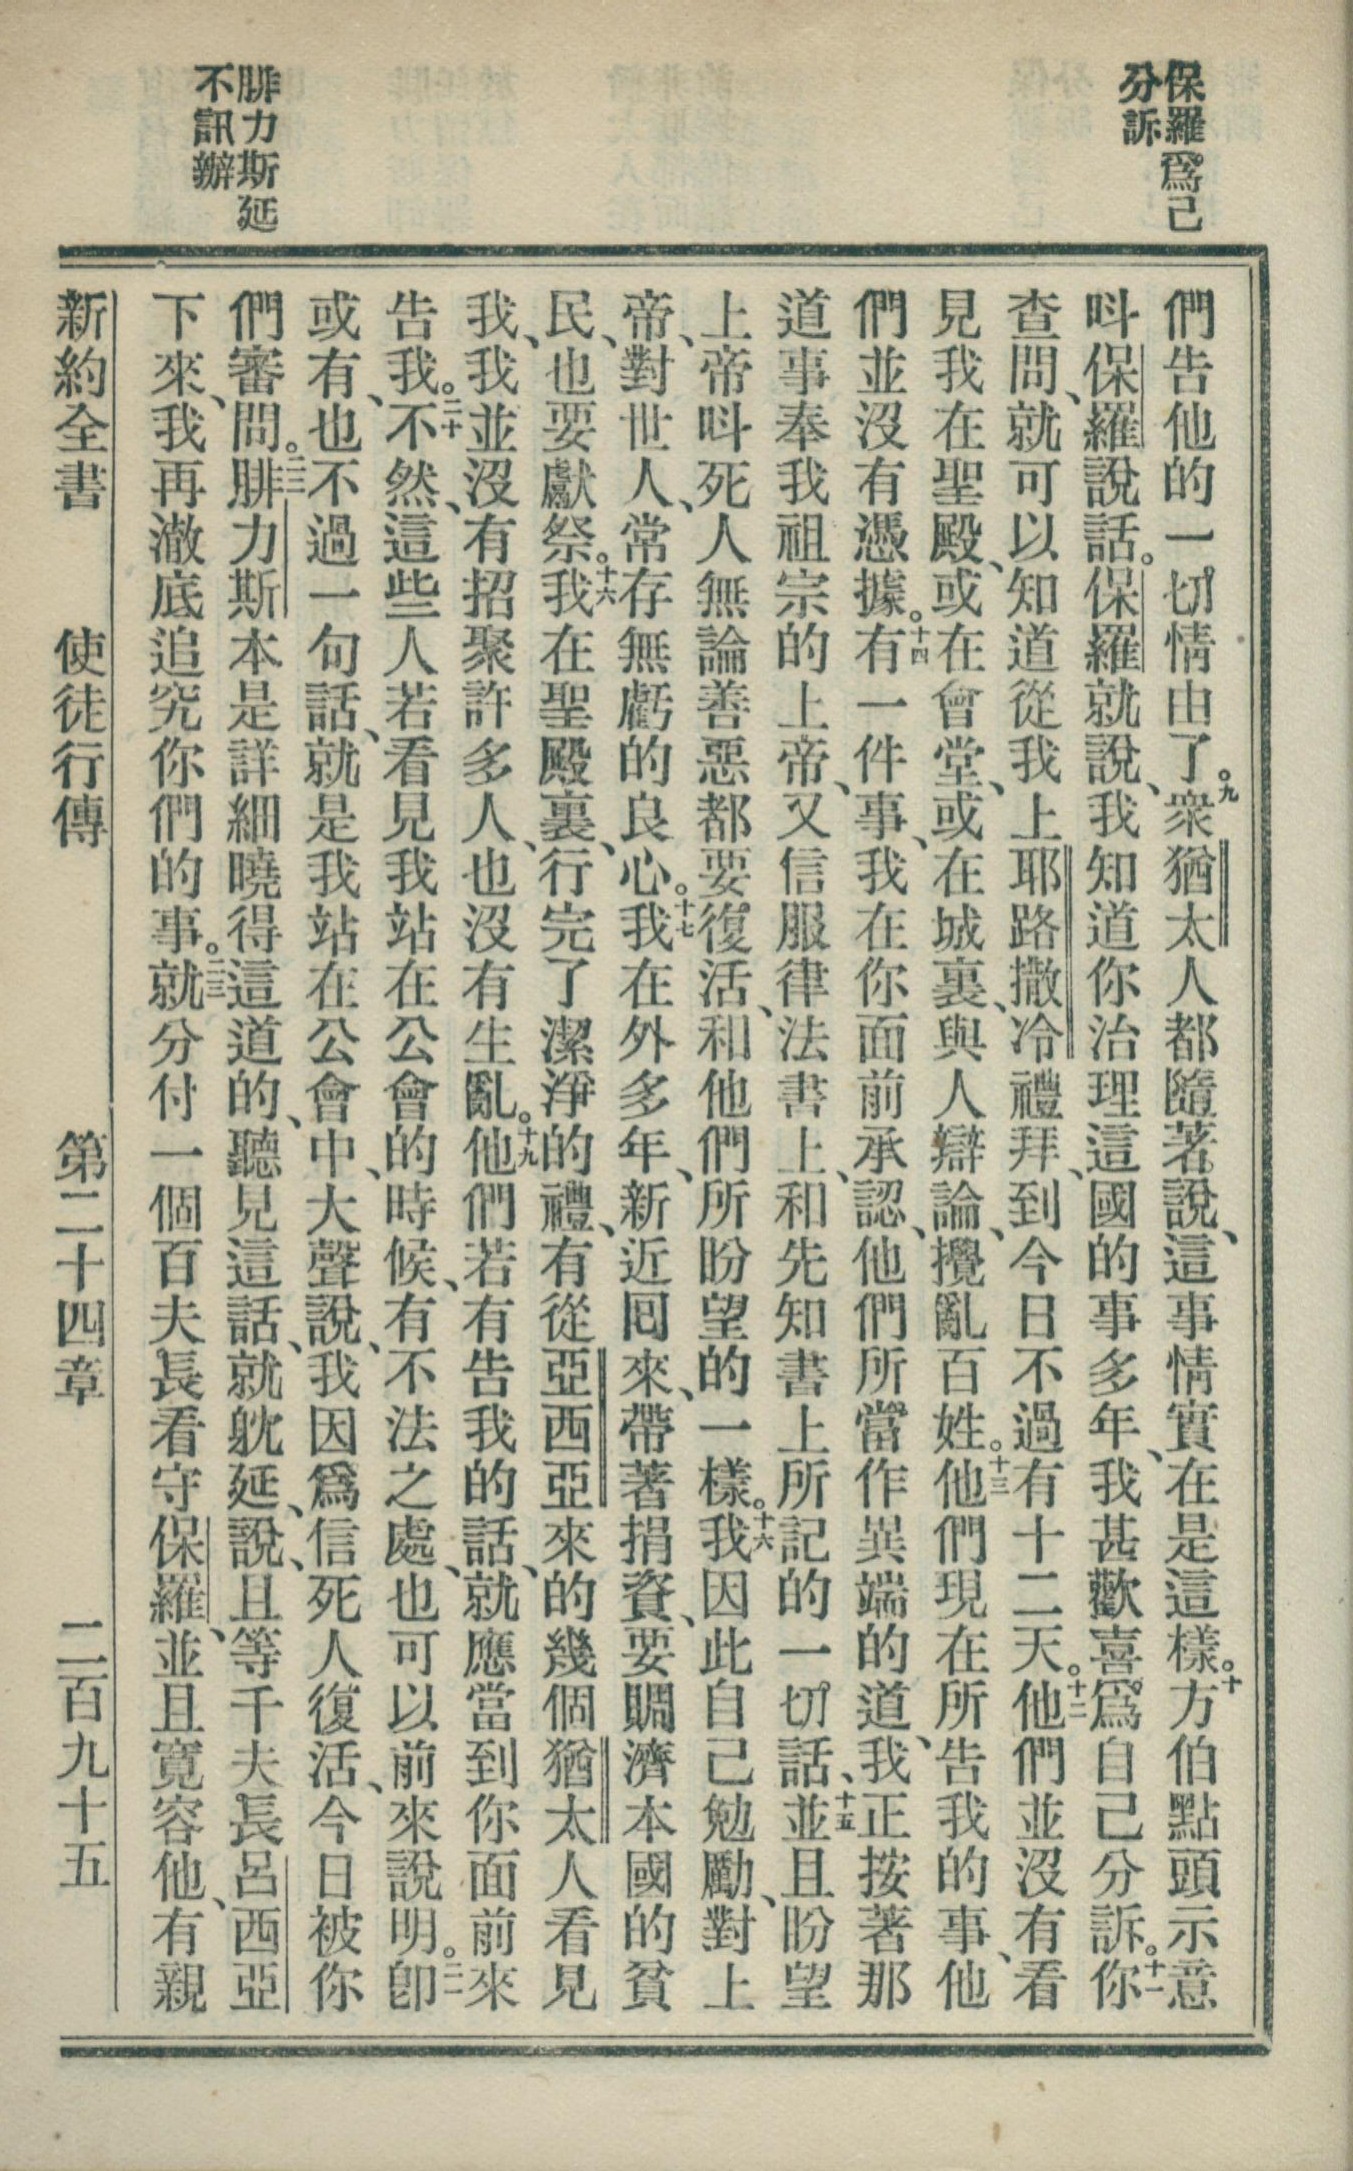 保羅爲己
分訴
腓力斯延
不訊辦
們告他的一切情由了。九衆猶太人都隨著說、這事情實在是這樣。十方伯點頭示意
呌保羅說話。保羅就說、我知道你治理這國的事多年、我甚歡喜爲自己分訴。十一你
查問、就可以知道從我上耶路撒冷禮拜、到今日不過有十二天。十二他們並沒有看
見我在聖殿、或在會堂、或在城裏、與人辯論、攪亂百姓。十三他們現在所告我的事、他
們並沒有憑據。十四有一件事、我在你面前承認、他們所當作異端的道、我正按著那
道事奉我祖宗的上帝、又信服律法書上、和先知書上所記的一切話、十五並且盼望
上帝呌死人無論善惡都要復活、和他們所盼望的一樣。十六我因此自己勉勵、對上
帝、對世人、常存無虧的良心。十七我在外多年、新近囘來、帶著捐資、要賙濟本國的貧
民、也要獻祭。十六我在聖殿裏、行完了潔淨的禮、有從亞西亞來的幾個猶太人看見
我、我並沒有招聚許多人、也沒有生亂。十九他們若有告我的話、就應當到你面前來
告我。二十不然、這些人若看見我站在公會的時候、有不法之處、也可以前來說明。二一卽
或有、也不過一句話、就是我站在公會中、大聲說、我因爲信死人復活、今日被你
們審問。二二腓力斯本是詳細曉得這道的、聽見這話、就躭延、說、且等千夫長呂西亞
下來、我再澈底追究你們的事。二三就分付一個百夫長看守保羅、並且寬容他、有親
新約全書 使徒行傳 第二十四章 二百九十五